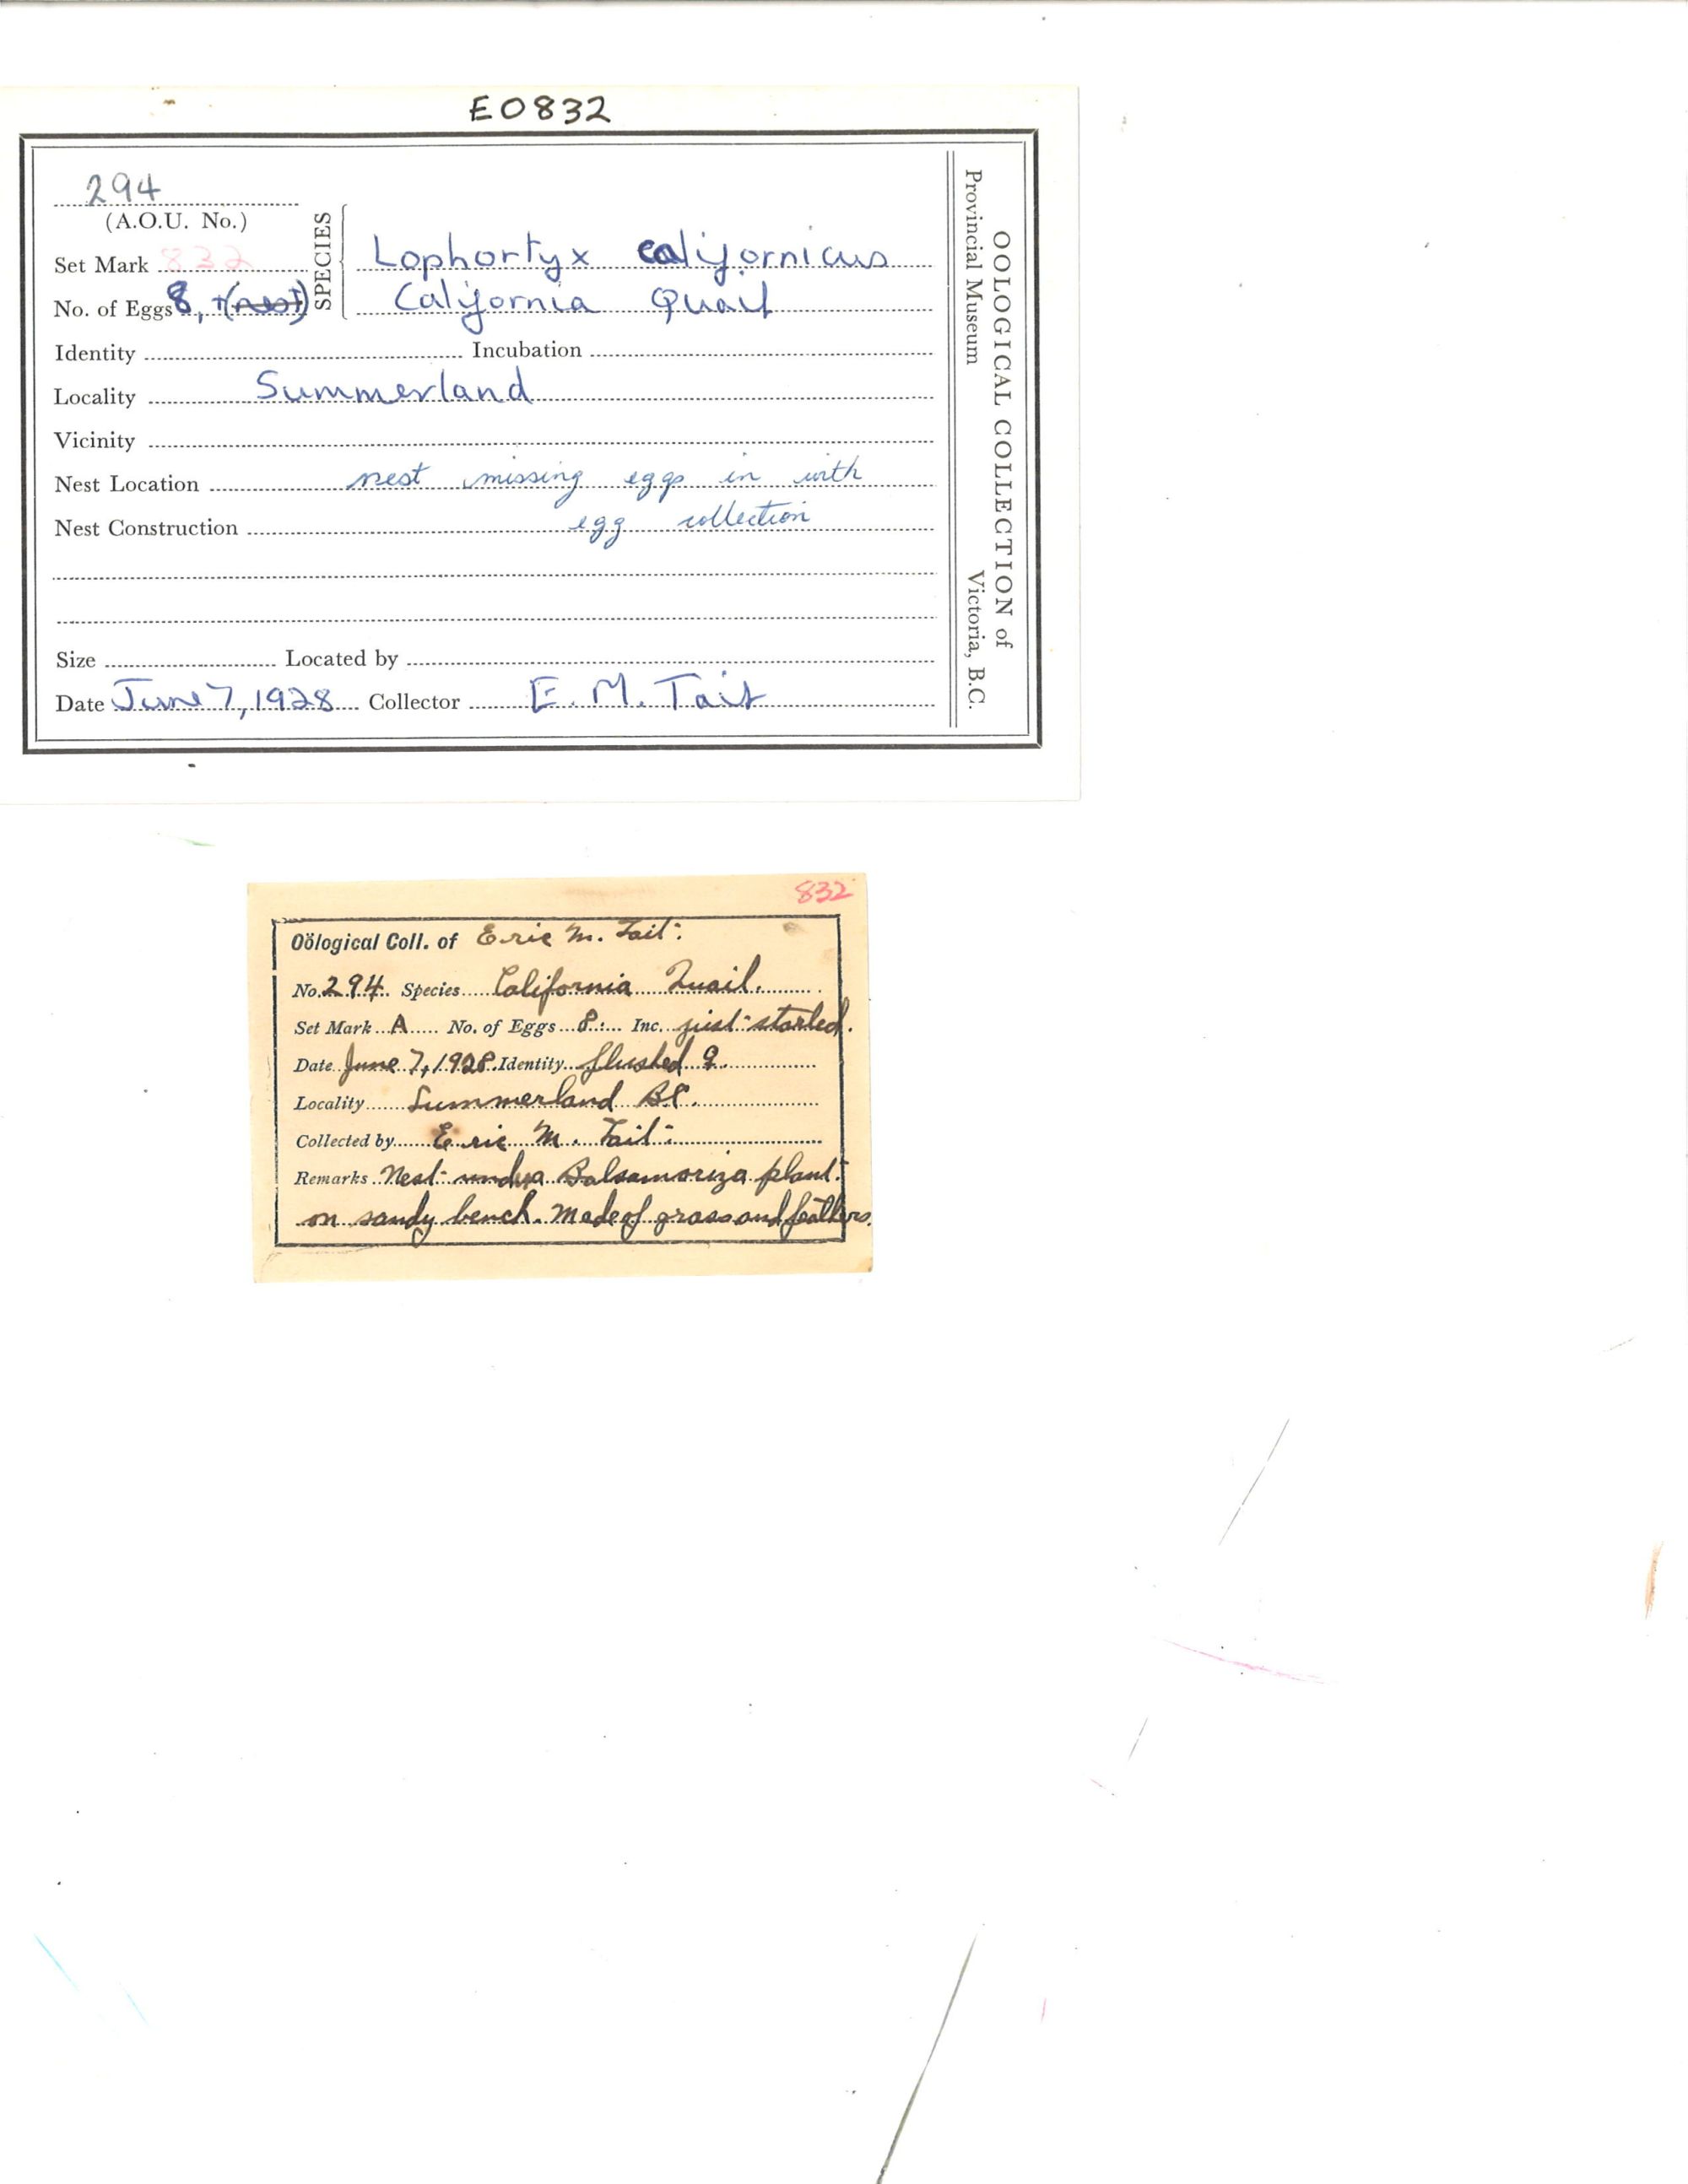 E0832
294
(A.O.U. No.)
Set Mark 832
No. of Eggs 8, +(nest)
SPECIES
Lophortyx californicus
California Quail
Identity Incubation
Locality Summerland
Vicinity
Nest Location nest missing eggs in with
Nest Construction egg collection
Size Located by
Date June 7, 1928 Collector E. M. Tait
OOLOGICAL COLLECTION of
Provincial Museum Victoria, B.C.
832
Oölogical Coll. of Eric M. Tait.
No. 294. Species California Quail.
Set Mark A No. of Eggs 8. Inc. just started.
Date June 7, 1928. Identity flushed ♀.
Locality Summerland BC.
Collected by Eric M. Tait.
Remarks Nest under a Balsamoriza plant.
on sandy bench. Made of grass and feathers.